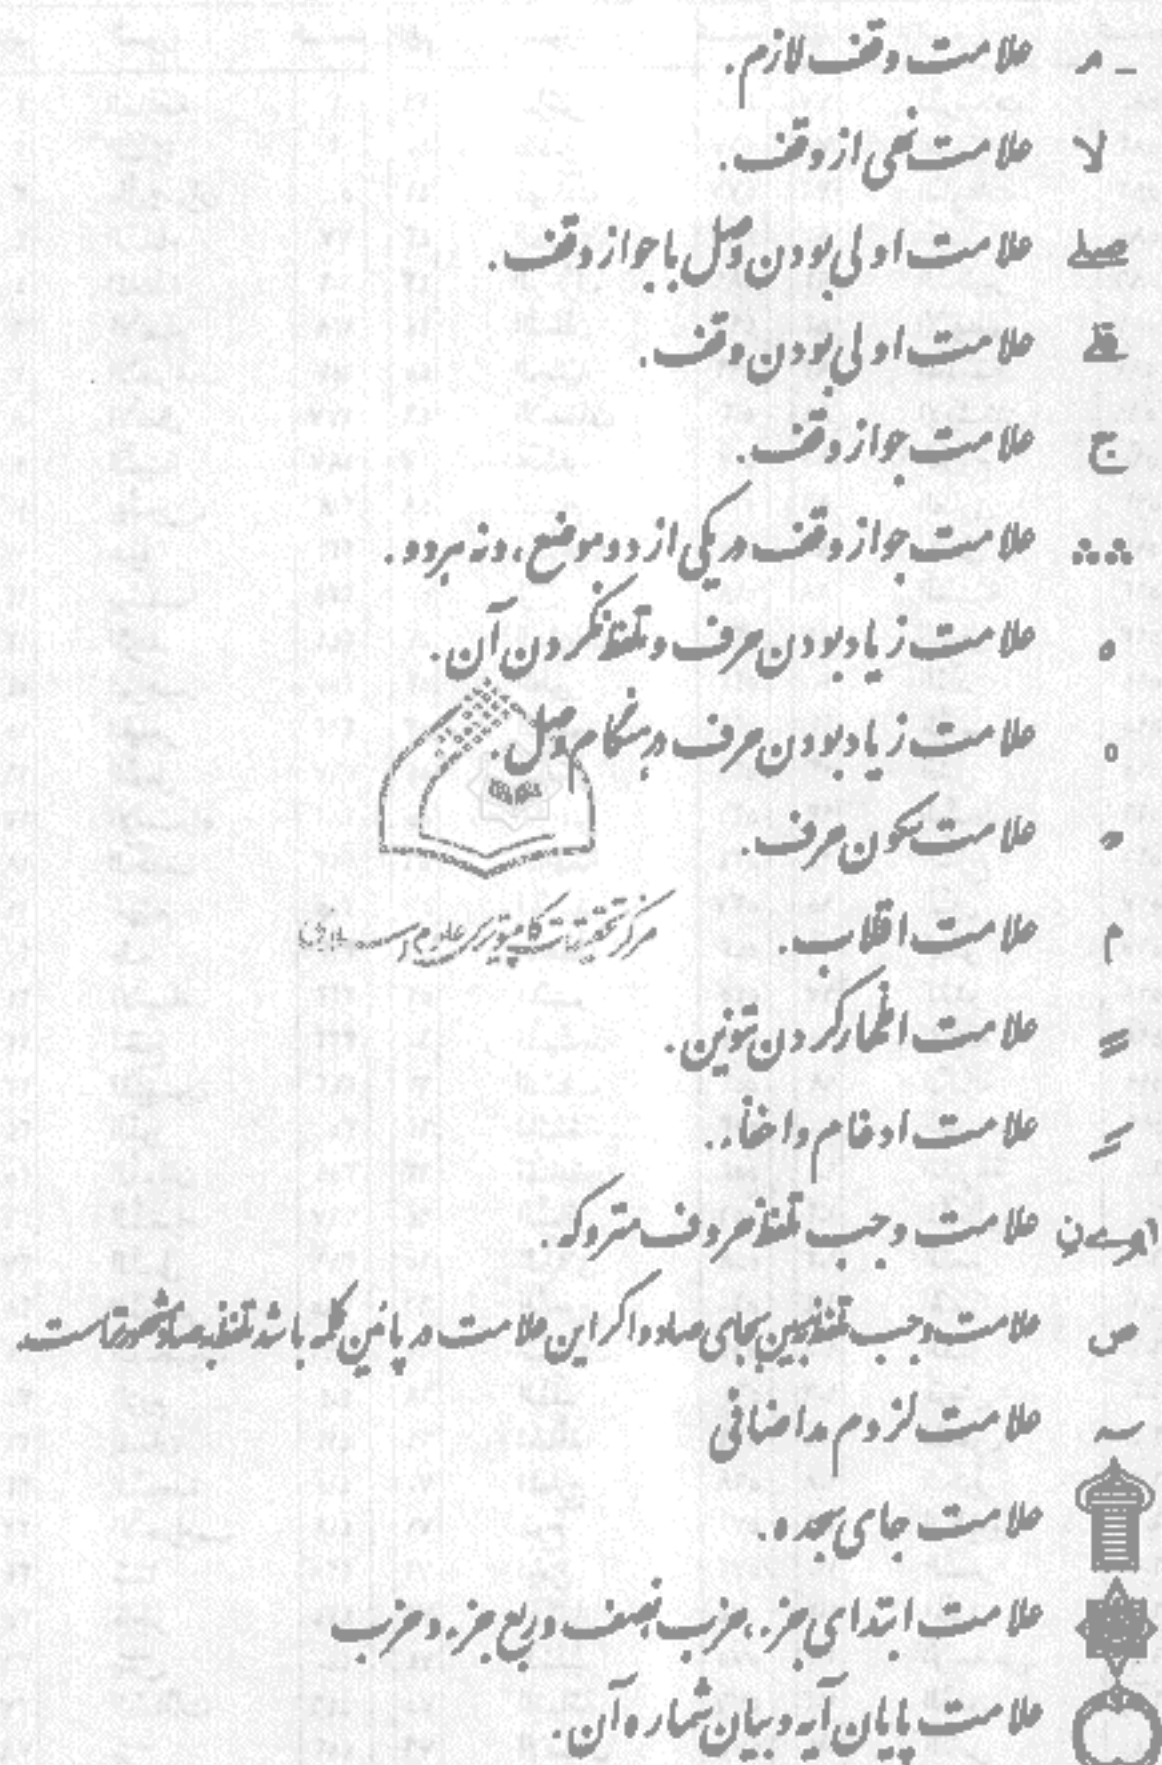 مـ علامت وقف لازم.
لا علامت نهی از وقف.
صلے علامت اولی بودن وصل با جواز وقف.
قلے علامت اولی بودن وقف.
ج علامت جواز وقف.
∴ ∴ علامت جواز وقف در یکی از دو موضع، و نه هر دو.
ه علامت زیاد بودن حرف و تلفظ نکردن آن.
ه علامت زیاد بودن حرف در هنگام وصل.
علامت سکون حرف.
مرکز تحقیقات کامپیوتری علوم اسلامی
م علامت اقلاب.
علامت اظهار کردن تنوین.
علامت ادغام و اخفاء.
علامت وجب تلفظ حروف متروکه.
ص علامت وجب تلفظ بسین بجای صاد و اگر این علامت در پائین کلمه باشد تلفظ بصاد مشهورتر است.
علامت لزوم مد اضافی
علامت جای سجده.
علامت ابتدای جزء، حزب نصف و ربع جزء و حزب
علامت پایان آیه و بیان شماره آن.